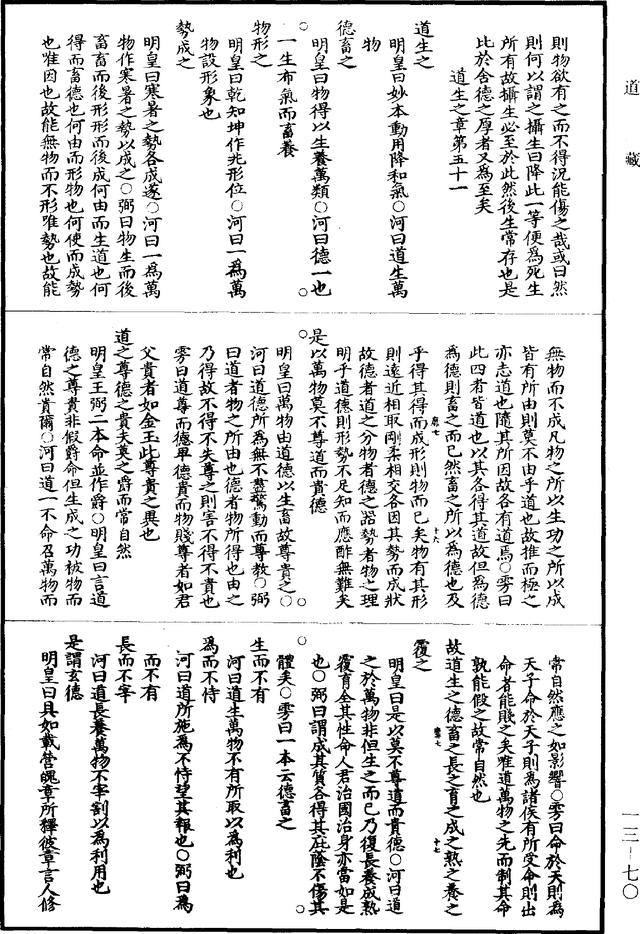 道藏
則物欲有之而不得況能傷之哉或曰然
則何以謂之攝生曰降此一等便為死生
所有故攝生必至於此然後生常存也是
比於含德之厚者又為至矣
道生之章第五十一
道生之
明皇曰妙本動用降和氣○河曰道生萬
物
德畜之
明皇曰物得以生養萬類○河曰德一也
一生布氣而畜養
物形之
明皇曰乾知坤作兆形位○河曰一為萬
物設形象也
勢成之
明皇曰寒暑之勢各成遂○河曰一為萬
物作寒暑之勢以成之○弼曰物生而後
畜畜而後形形而後成何由而生道也何
得而畜德也何由而形物也何使而成勢
也唯因也故能無物而不形唯勢也故能
無物而不成凡物之所以生功之所以成
皆有所由則莫不由乎道也故推而極之
亦志道也隨其所因故各有道焉○雱曰
此四者皆道也以其各得其道故但為德
為德則畜之而已然畜之所以為德也及
乎得其得而成形則物而已矣物有其形
則遠近相取剛柔相交各因其勢而成狀
故德者道之分物者德之器勢者物之理
明乎道德則形勢不足知而應酢無難矣
是以萬物莫不尊道而貴德
明皇曰萬物由道德以生畜故尊貴之○
河曰道德所為無不盡驚動而尊教○弼
曰道者物之所由也德者物所得也由之
乃得故不得不失尊之則害不得不貴也
雱曰道尊而德卑德貴而物賤尊者如君
父貴者如金玉此尊貴之異也
道之尊德之貴夫莫之爵而常自然
明皇王弼二本命並作爵○明皇曰言道
德之尊貴非假爵命但生成之功被物而
常自然貴爾○河曰道一不命召萬物而
常自然應之如影響○雱曰命於天則為
天子命於天子則為諸侯有所受命則出
命者能賤之矣唯道萬物之先而制其命
孰能假之故常自然也
故道生之德畜之長之育之成之熟之養之
覆之
明皇曰是以莫不尊道而貴德○河曰道
之於萬物非但生之而已乃復長養成熟
覆育全其性命人君治國治身亦當如是
也○弼曰謂成其質各得其庇蔭不傷其
體矣○雱曰一本云德畜之
生而不有
河曰道生萬物不有所取以為利也
為而不恃
河曰道所施為不恃望其報也○弼曰為
而不有
長而不宰
河曰道長養萬物不宰割以為利用也
是謂玄德
明皇曰具如載營魄章所釋彼章言人修
一三—七〇